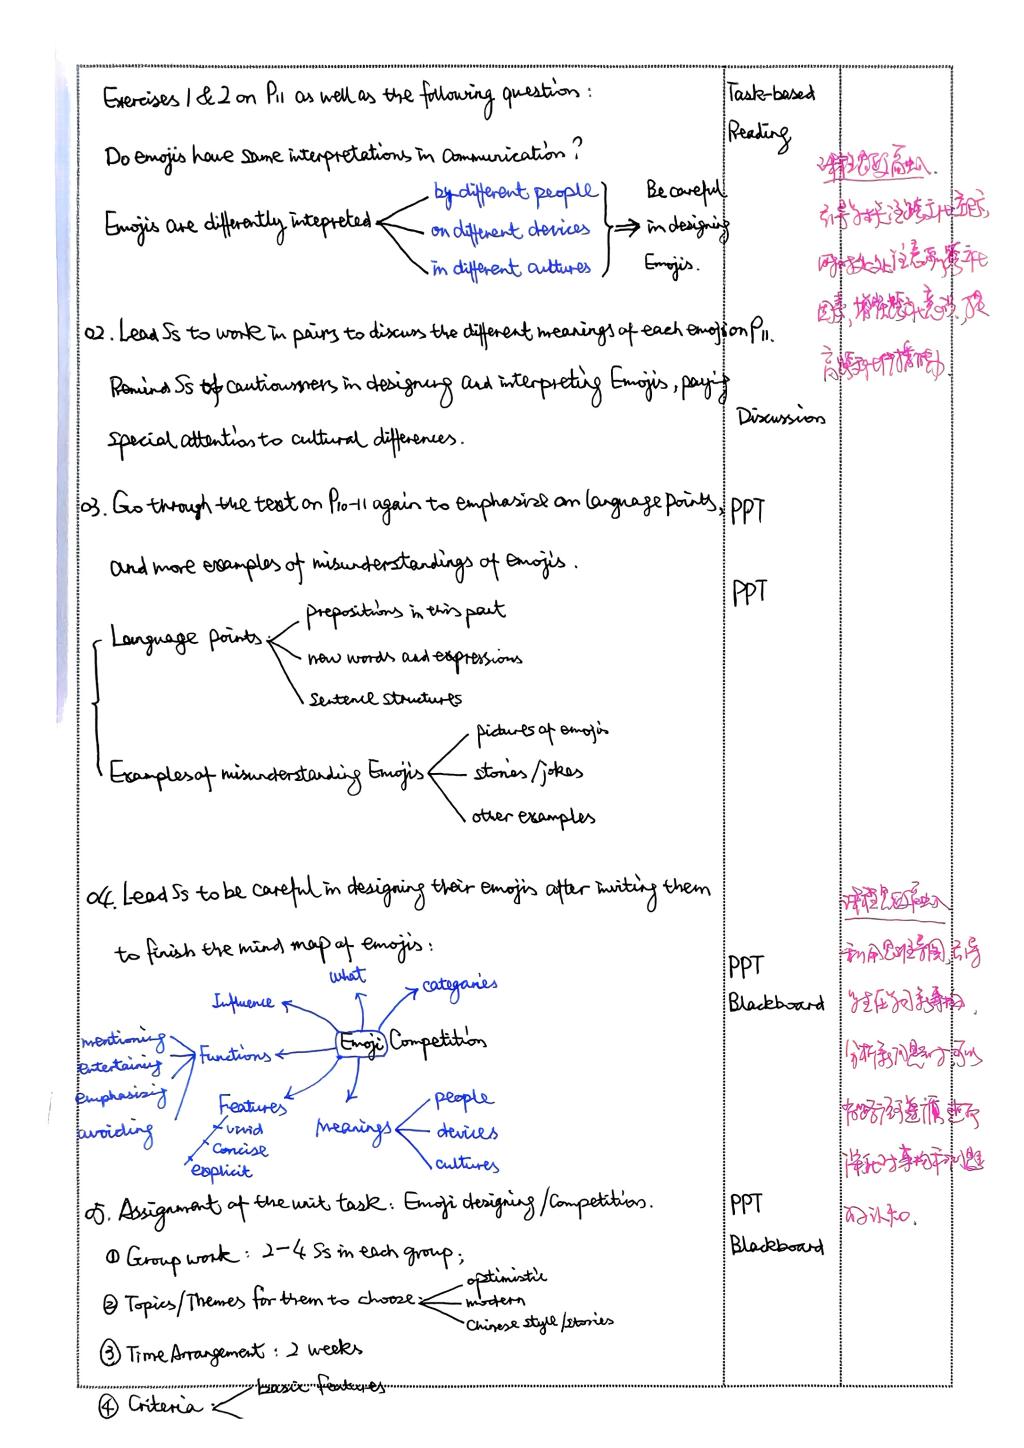 Exercises 1 & 2 on P11 as well as the following question:
Task-based
Reading
Do emojis have same interpretations in communication?
课程思政融入
Emojis are differently intepreted
by different people
on different devices
in different cultures
Be careful
in designing
Emojis.
02. Lead Ss to work in pairs to discuss the different meanings of each emoji on P11.
Remind Ss of cautiousness in designing and interpreting Emojis, paying
special attention to cultural differences.
Discussion
03. Go through the text on P10-11 again to emphasize on language points,
PPT
and more examples of misunderstandings of emojis.
PPT
Language points:
prepositions in this part
new words and expressions
sentence structures
Examples of misunderstanding Emojis
pictures of emojis
stories/jokes
other examples
04. Lead Ss to be careful in designing their emojis after inviting them
课程思政融入
to finish the mind map of emojis:
利用思维导图,引导
PPT
Blackboard
Emoji Competition
what
categories
Influence
Functions
mentioning
entertaining
emphasizing
avoiding
Features
vivid
concise
explicit
meanings
people
devices
cultures
的认知.
05. Assignment of the unit task: Emoji designing/Competition.
PPT
Blackboard
① Group work: 2-4 Ss in each group;
② Topics/Themes for them to choose:
optimistic
modern
Chinese style/stories
③ Time Arrangement: 2 weeks
④ Criteria:
basic features